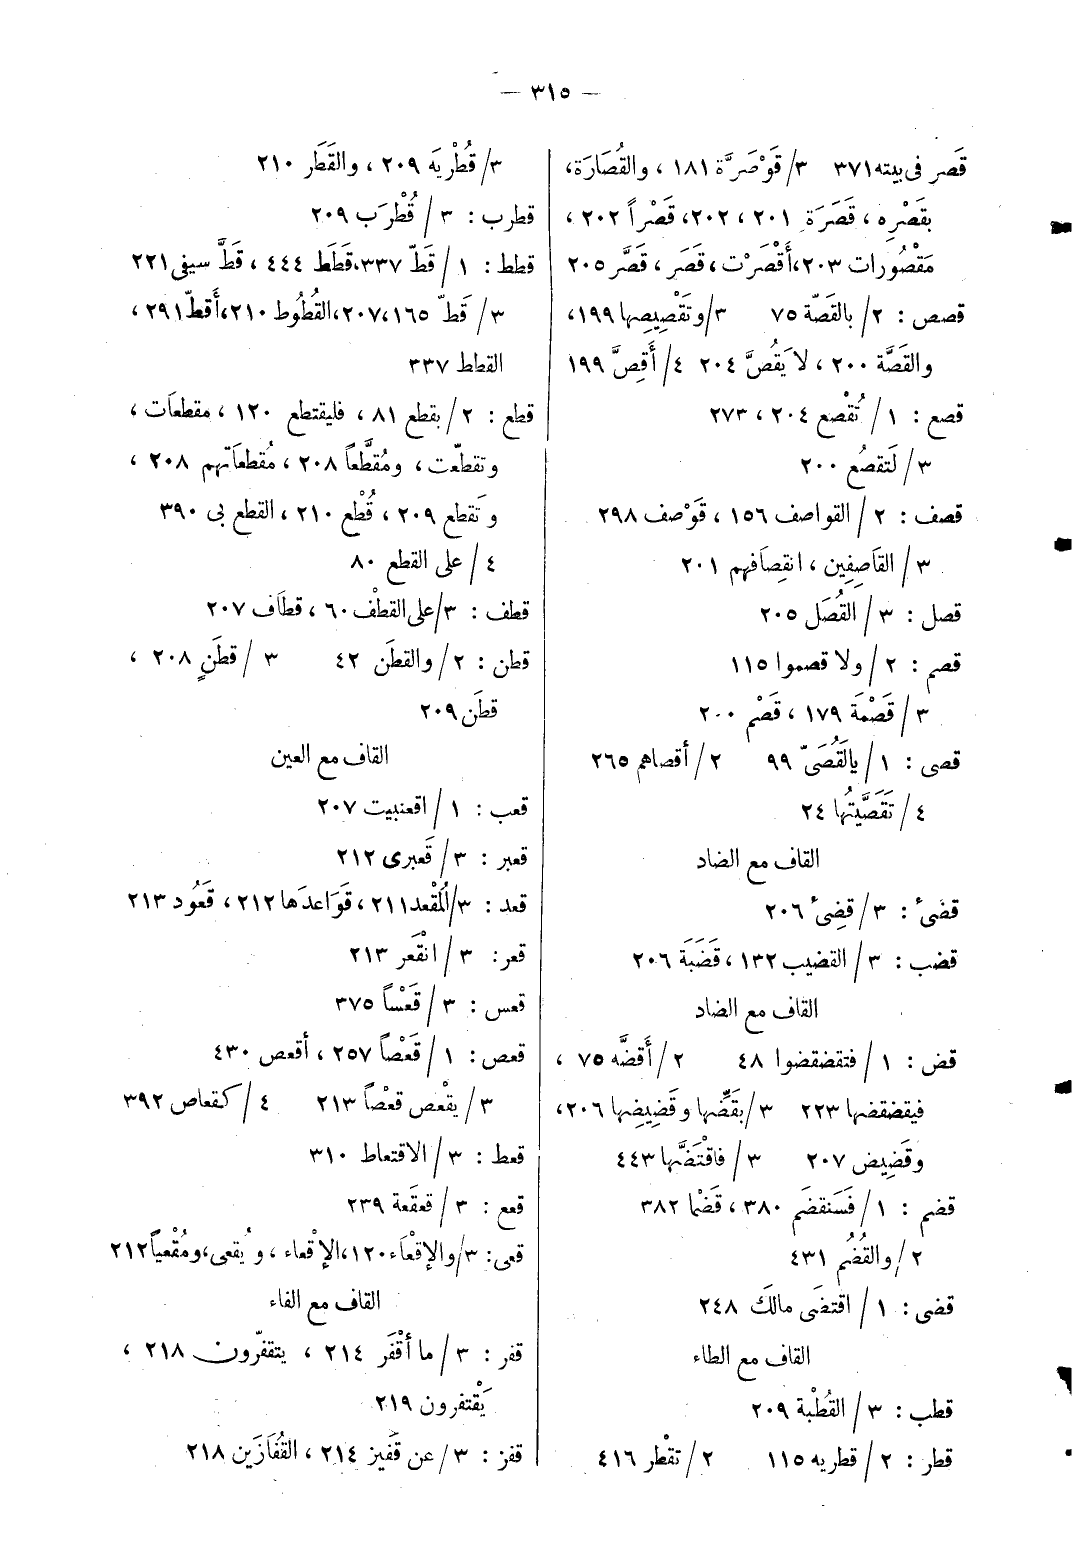 — ٣١٥ —
قَصر فى بيته ٣٧١ ٣/ قَوْصَرَّة ١٨١ ، والقُصَارَة،
بقَصْرِه ، قَصَرَة ٢٠١ ، ٢٠٢، قَصْراً ٢٠٢ ،
مَقْصُورات ٢٠٣،أَقْصَرْت ، قَصَر ، قَصَّر ٢٠٥
قصص : ٢ / بالقَصّة ٧٥ ٣/وتَقْصِيصها ١٩٩،
والقَصَّة ٢٠٠ ، لا يَقُصَّ ٢٠٤ ٤/ أَقِصَّ ١٩٩
قصع : ١ / تُقْصع ٢٠٤ ، ٢٧٣
٣ / لَتقصُع ٢٠٠
قصف : ٢ / القواصف ١٥٦ ، قَوْصف ٢٩٨
٣ / القَاصِفِين ، انقِصَافهم ٢٠١
قصل : ٣ / القُصَل ٢٠٥
قصم : ٢ / ولا قصموا ١١٥
٣ / قَصْمَة ١٧٩ ، قَصْم ٢٠٠
قصى : ١ / بالَقُصَىّ ٩٩ ٢ / أقصاهم ٢٦٥
٤ / تَقَصَّيتُها ٢٤
القاف مع الضاد
قضىء : ٣ / قضِىء ٢٠٦
قضب : ٣ / القضيب ١٣٢ ، قَضَبَة ٢٠٦
القاف مع الضاد
قض : ١ / فتقضقضوا ٤٨ ٢ / أَقضَّه ٧٥ ،
فيقضقضها ٢٢٣ ٣ /بقَضِّها وقَضِيضِها ٢٠٦،
وقَضِيض ٢٠٧ ٣ / فاقْتَضَّها ٤٤٣
قضم : ١ / فَسَنقضَم ٣٨٠ ، قَضْما ٣٨٢
٢ / والقُضُم ٤٣١
قضى : ١ / اقتضَى مالَكَ ٢٤٨
القاف مع الطاء
قطب : ٣ / القُطْبة ٢٠٩
قطر : ٢ / قطريه ١١٥ ٢ / تقْطر ٤١٦
٣/ قُطْريَه ٢٠٩ ، والقَطَر ٢١٠
قطرب : ٣ / قُطْرَب ٢٠٩
قطط : ١ / قَطّ ٣٣٧،قَطَط ٤٤٤ ، قَطَّ سيفى ٢٢١
٣ / قَطّ ١٦٥ ،٢٠٧،القُطُوط ٢١٠،أَقطّ ٢٩١ ،
القطاط ٣٣٧
قطع : ٢ / بقطع ٨١ ، فليقتطع ١٢٠ ، مقطعَات ،
وتقطّعت ، ومُقطَّعاً ٢٠٨ ، مُقطعَاتهم ٢٠٨ ،
وتَقطع ٢٠٩ ، قُطْع ٢١٠ ، القطع بى ٣٩٠
٤ / على القطع ٨٠
قطف : ٣/على القطْف ٦٠ ، قطَاف ٢٠٧
قطن : ٢ / والقطَن ٤٢ ٣ / قطَنٍ ٢٠٨ ،
قطَن ٢٠٩
القاف مع العين
قعب : ١ / اقعنبيت ٢٠٧
قعبر : ٣ / قَعبرى ٢١٢
قعد : ٣ /المُقْعد ٢١١ ، قَوَاعدَها ٢١٢ ، قَعَُود ٢١٣
قعر: ٣ / انْقَعر ٢١٣
قعس : ٣ / قَعْساً ٣٧٥
قعص : ١ / قَعْصاً ٢٥٧ ، أقعص ٤٣٠
٣ / يقْعص قعْصاً ٢١٣ ٤ / كقعاص ٣٩٢
قعط : ٣ / الاقتعاط ٣١٠
قعع : ٣ / قعقَعة ٢٣٩
قعى: ٣/والإقْعَاء ١٢٠،الإقْعاء ، ويُقعى،ومُقْعياً ٢١٢
القاف مع الفاء
قفر : ٣ / ما أقْفَر ٢١٤ ، يتقفّرون ٢١٨ ،
يَقْتفرون ٢١٩
قفز : ٣ / عن قَفيز ٢١٤ ، القُفَازَين ٢١٨